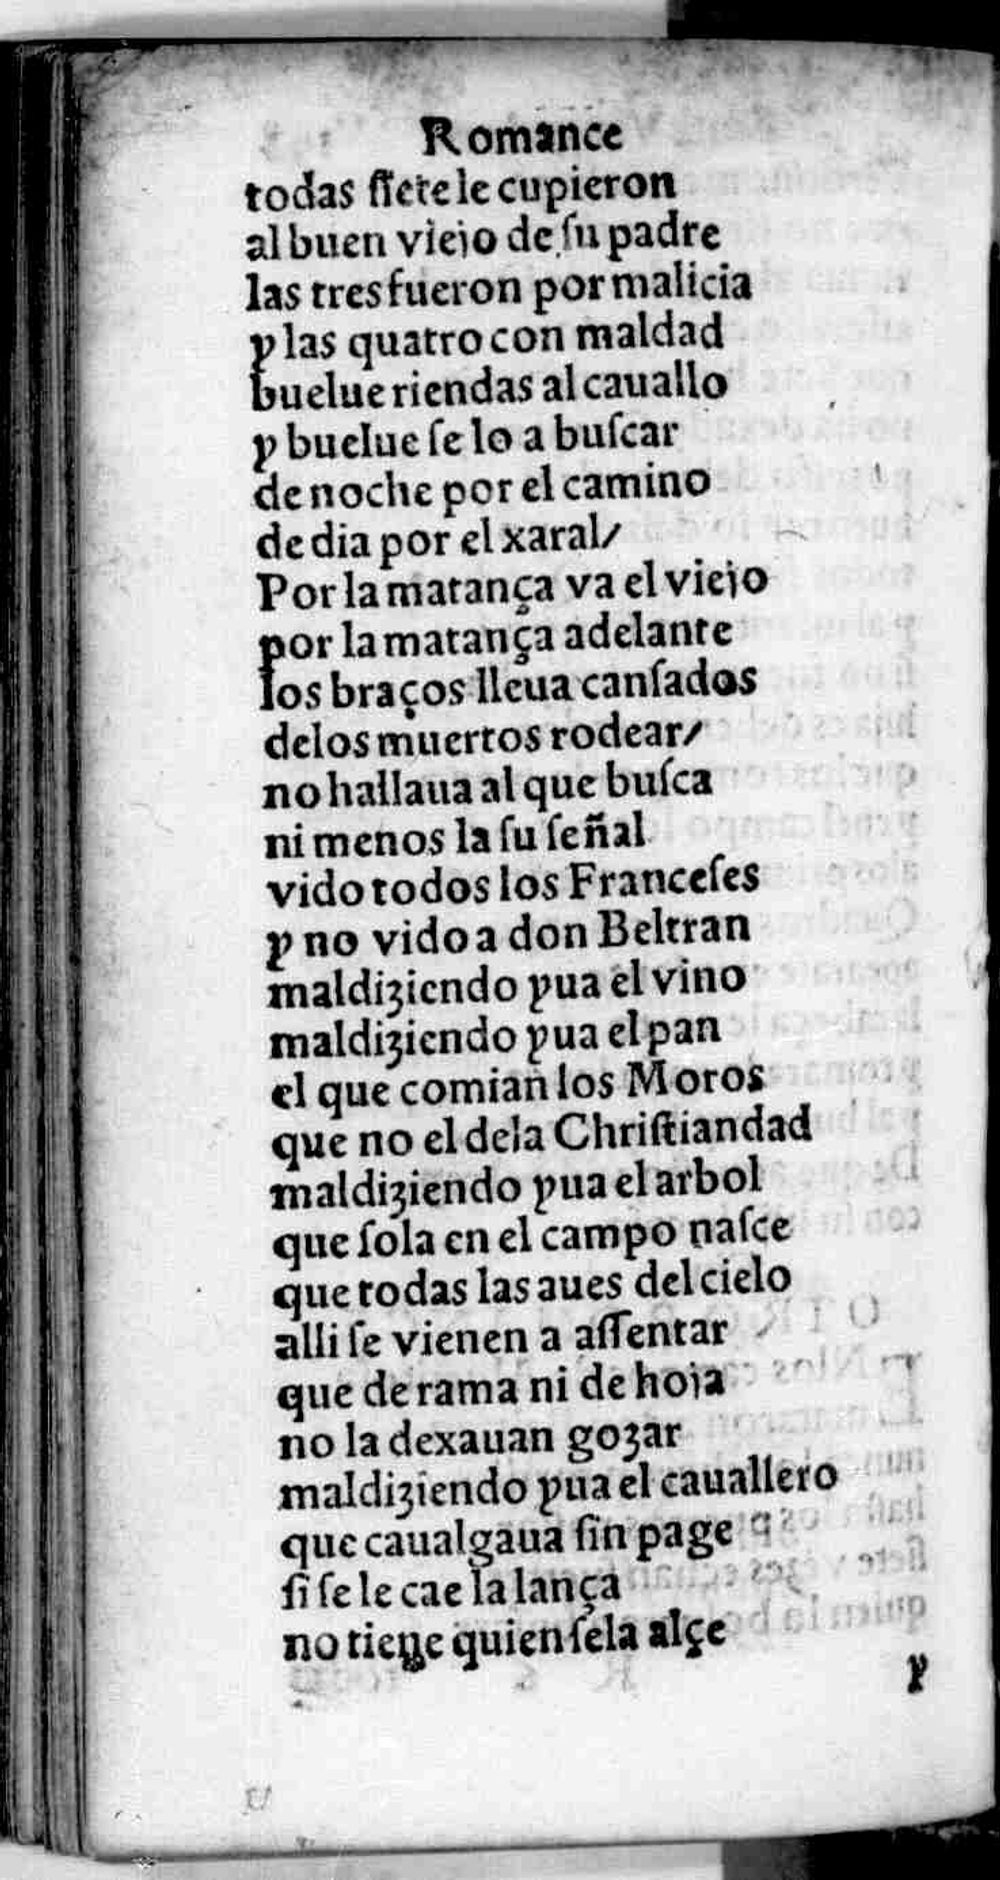 Romance
todas ſiete le cupieron
al buen viejo de ſu padre
las tres fueron por malicia
y las quatro con maldad
buelue riendas al cauallo
y buelue ſe lo a buſcar
de noche por el camino
de dia por el xaral/
Por la matança va el viejo
por la matança adelante
los braços lleua canſados
delos muertos rodear/
no hallaua al que buſca
ni menos la ſu ſeñal
vido todos los Franceſes
y no vido a don Beltran
maldiziendo yua el vino
maldiziendo yua el pan
el que comian los Moros
que no el dela Chriſtiandad
maldiziendo yua el arbol
que ſola en el campo naſce
que todas las aues del cielo
alli ſe vienen a aſſentar
que de rama ni de hoja
no la dexauan gozar
maldiziendo yua el cauallero
que caualgaua ſin page
ſi ſe le cae la lança
no tiene quien ſela alçe
y